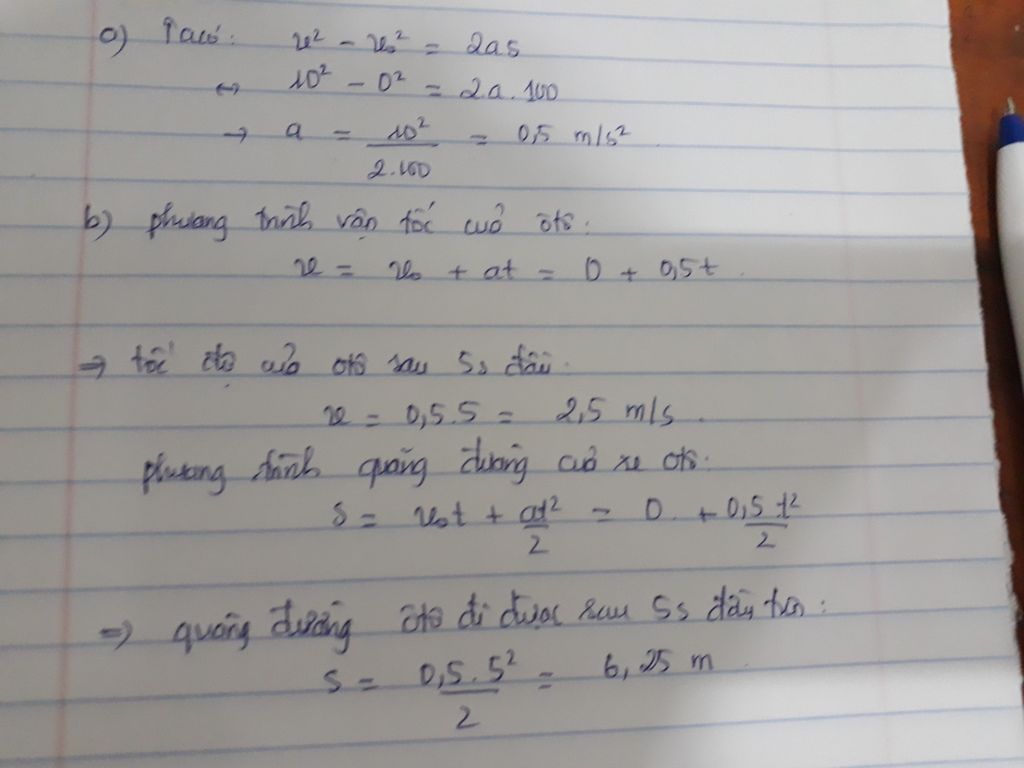 a) Ta có: v² - v₀² = 2as
↔ 10² - 0² = 2.a.100
→ a = 10²/2.100 = 0,5 m/s²
b) phương trình vận tốc của ôtô:
v = v₀ + at = 0 + 0,5t.
⇒ tốc độ của ôtô sau 5s đầu:
v = 0,5.5 = 2,5 m/s.
phương trình quãng đường của xe ôtô:
s = v₀t + at²/2 = 0 + 0,5t²/2
⇒ quãng đường ôtô đi được sau 5s đầu tiên:
s = 0,5.5²/2 = 6,25 m